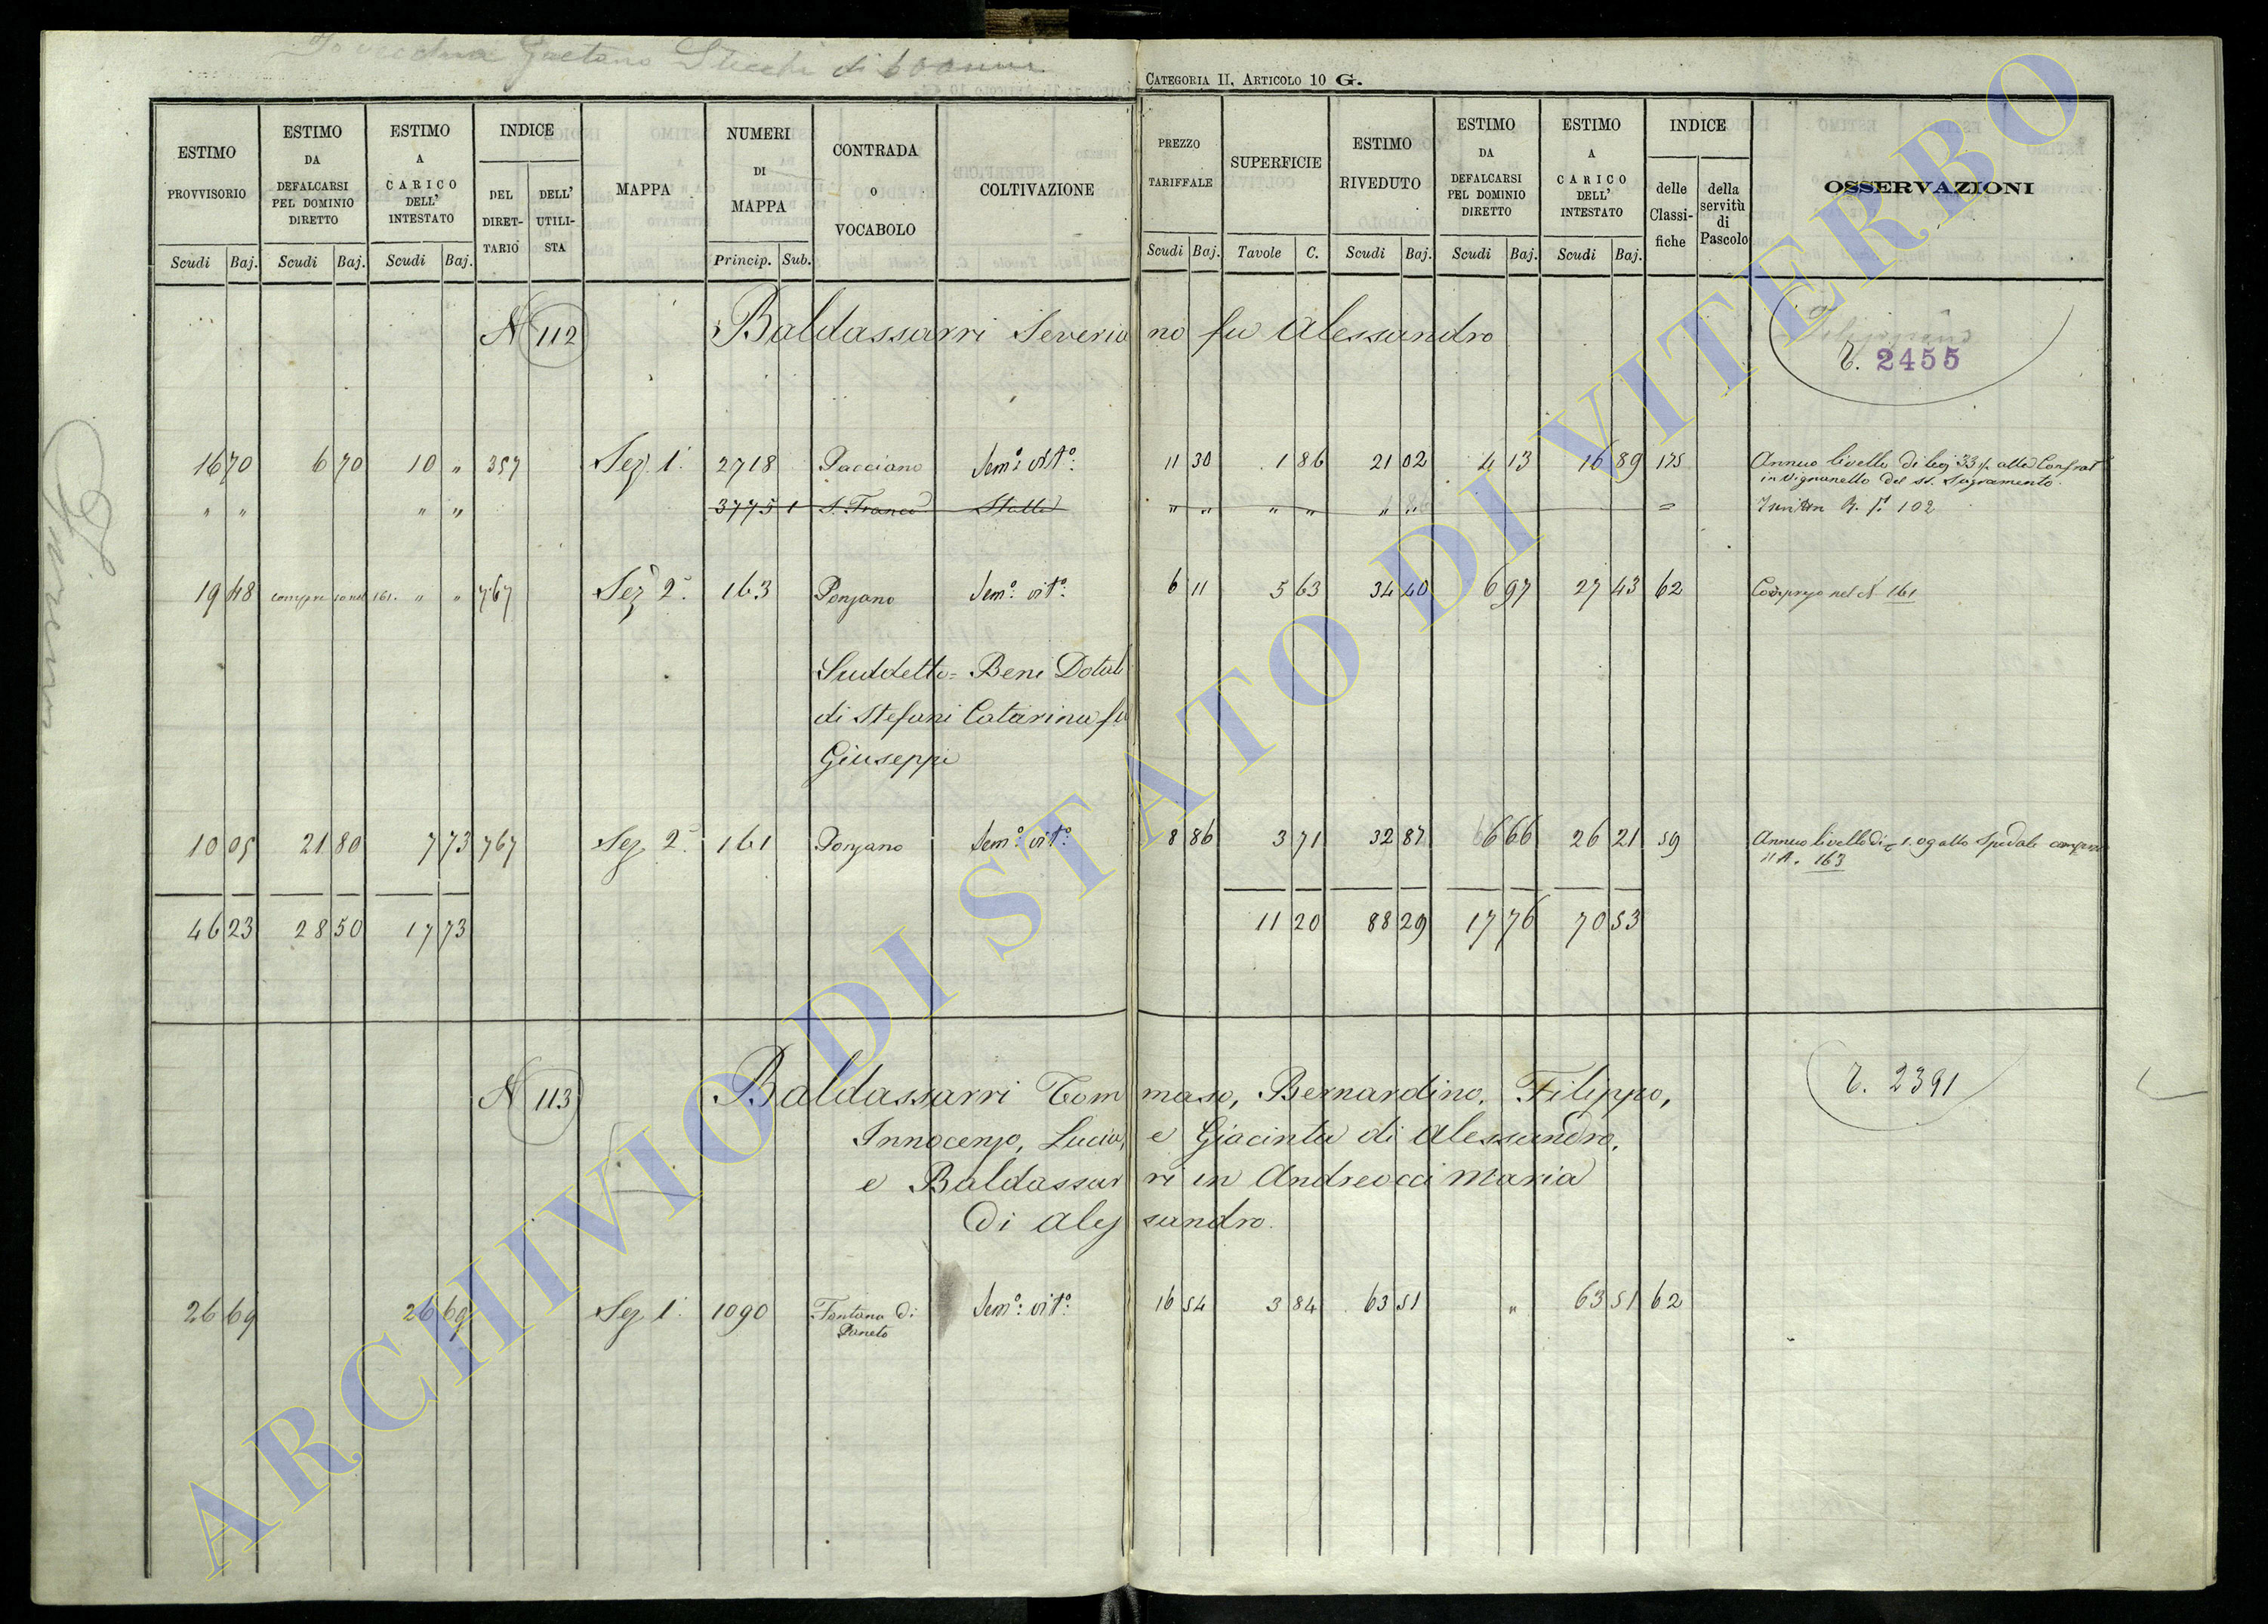 Gaetano Stecchi di
CATEGORIA II, ARTICOLO 10 G.
ESTIMO PROVVISORIO Scudi Baj. ESTIMO DA DEFALCARSI PEL DOMINIO DIRETTO Scudi Baj. ESTIMO A CARICO DELL' INTESTATO Scudi Baj. INDICE DEL DIRETTARIO DELL' UTILISTA MAPPA NUMERI DI MAPPA Princip. Sub. CONTRADA O VOCABOLO COLTIVAZIONE PREZZO TARIFFALE Scudi Baj. SUPERFICIE Tavole C. ESTIMO RIVEDUTO Scudi Baj. ESTIMO DA DEFALCARSI PEL DOMINIO DIRETTO Scudi Baj. ESTIMO A CARICO DELL' INTESTATO Scudi Baj. INDICE delle Classifiche della servitù di Pascolo OSSERVAZIONI
N 112 Baldassarri Severiano fu Alessandro
2455
16 70 6 70 10 " 357 Sez. 1. 2718 Pacciano Sem.º vit.º 11 30 1 86 21 02 4 13 16 89 175 Annuo livello di 33 alla Confrat
in Vignanello del SS. Sagramento
" " " " 3775 1 S. Franco Stalla " " " " " " = 102
19 48 compreso nel 161. " " 767 Sez. 2. 163 Ponzano Sem.º vit.º 6 11 5 63 34 40 6 97 27 43 62 Compreso nel N 161
Suddetto = Beni Dotali
di Stefani Catarina fu
Giuseppe
10 05 21 80 7 73 767 Sez. 2. 161 Ponzano Sem.º vit.º 8 86 3 71 32 87 6 66 26 21 59 Annuo livello di 1.09 allo Spedale compreso
il N. 163
46 23 28 50 17 73 11 20 88 29 17 76 70 53
N 113 Baldassarri Tommaso, Bernardino, Filippo,
2391
Innocenzo, Lucia, e Giacinta di Alessandro,
e Baldassarri in Andreocci Maria
di Alessandro.
26 69 26 69 Sez. 1. 1090 Fontana di
Paneto Sem.º vit.º 16 54 3 84 63 51 " 63 51 62
ARCHIVIO DI STATO DI VITERBO